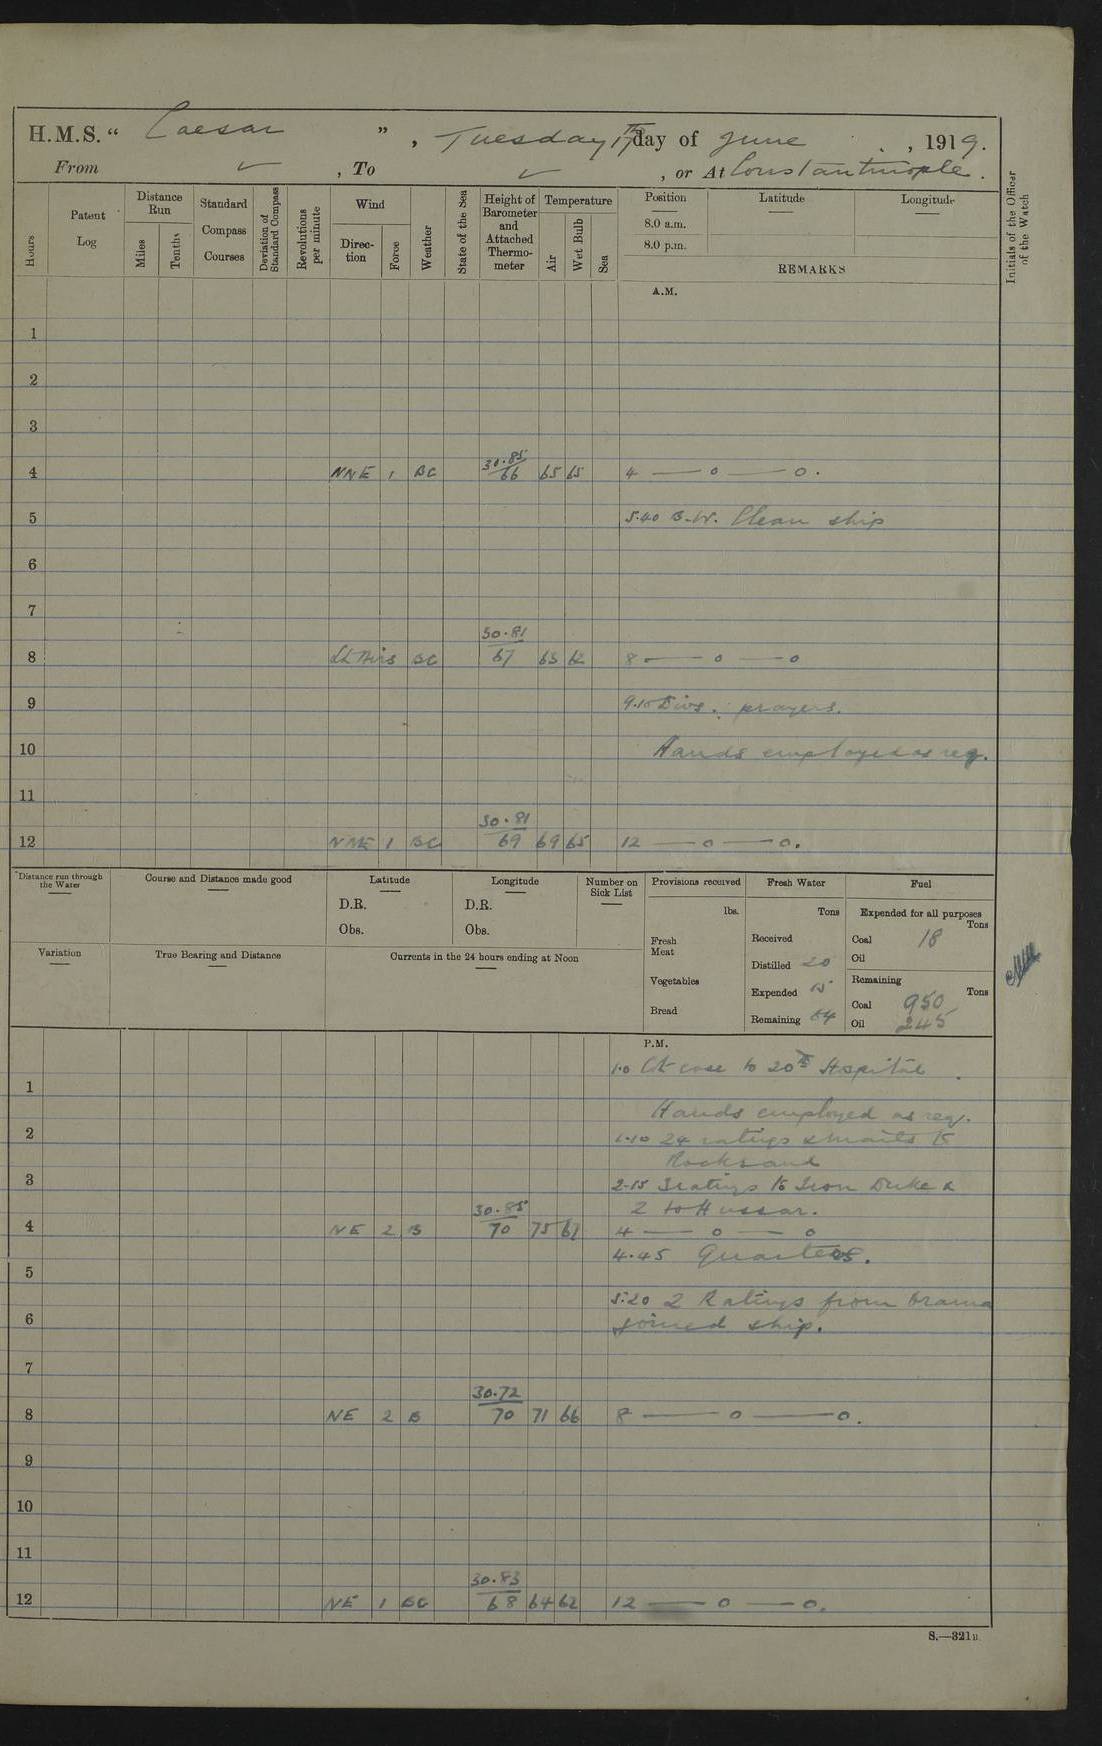 H.M.S. " Caesar ", Tuesday 17th day of June, 1919.
From ✓, To ✓, or At Constantinople.
Hours
Patent Log
Distance Run
Miles
Tenths
Standard Compass Courses
Deviation of Standard Compass
Revolutions per minute
Wind
Direction
Force
Weather
State of the Sea
Height of Barometer and Attached Thermometer
Temperature
Air
Wet Bulb
Sea
Position
8.0 a.m.
8.0 p.m.
Latitude
Longitude
REMARKS
Initials of the Officer of the Watch
A.M.
1
2
3
4 NNE 1 BC 30.85 66 65 65 4 — o — o.
5 5.40 B.W. Clean ship
6
7
8 Lt Airs BC 30.81 67 65 62 8 — o — o
9 9.15 Divs. prayers.
10 Hands employed as req.
11
12 NNE 1 BC 30.81 69 69 65 12 — o — o.
Distance run through the Water
Course and Distance made good
Latitude
D.R.
Obs.
Longitude
D.R.
Obs.
Number on Sick List
Provisions received
lbs.
Fresh Meat
Vegetables
Bread
Fresh Water
Tons
Received
Distilled 20
Expended 15
Remaining 64
Fuel
Expended for all purposes
Tons
Coal 18
Oil
Remaining
Tons
Coal 950
Oil 245
Variation
True Bearing and Distance
Currents in the 24 hours ending at Noon
P.M.
1.0 Cot case to 20th Hospital.
1
Hands employed as req.
2 1.10 24 ratings & mails to
Rocksand
3 2-15 3 ratings to Iron Duke &
2 to Hussar.
4 NE 2 B 30.85 70 75 61 4 — o — o
4.45 Quarters.
5
5.20 2 Ratings from
6 joined ship.
7
8 NE 2 B 30.72 70 71 66 8 — o — o.
9
10
11
12 NE 1 BC 30.83 68 64 62 12 — o — o.
S.—321B.